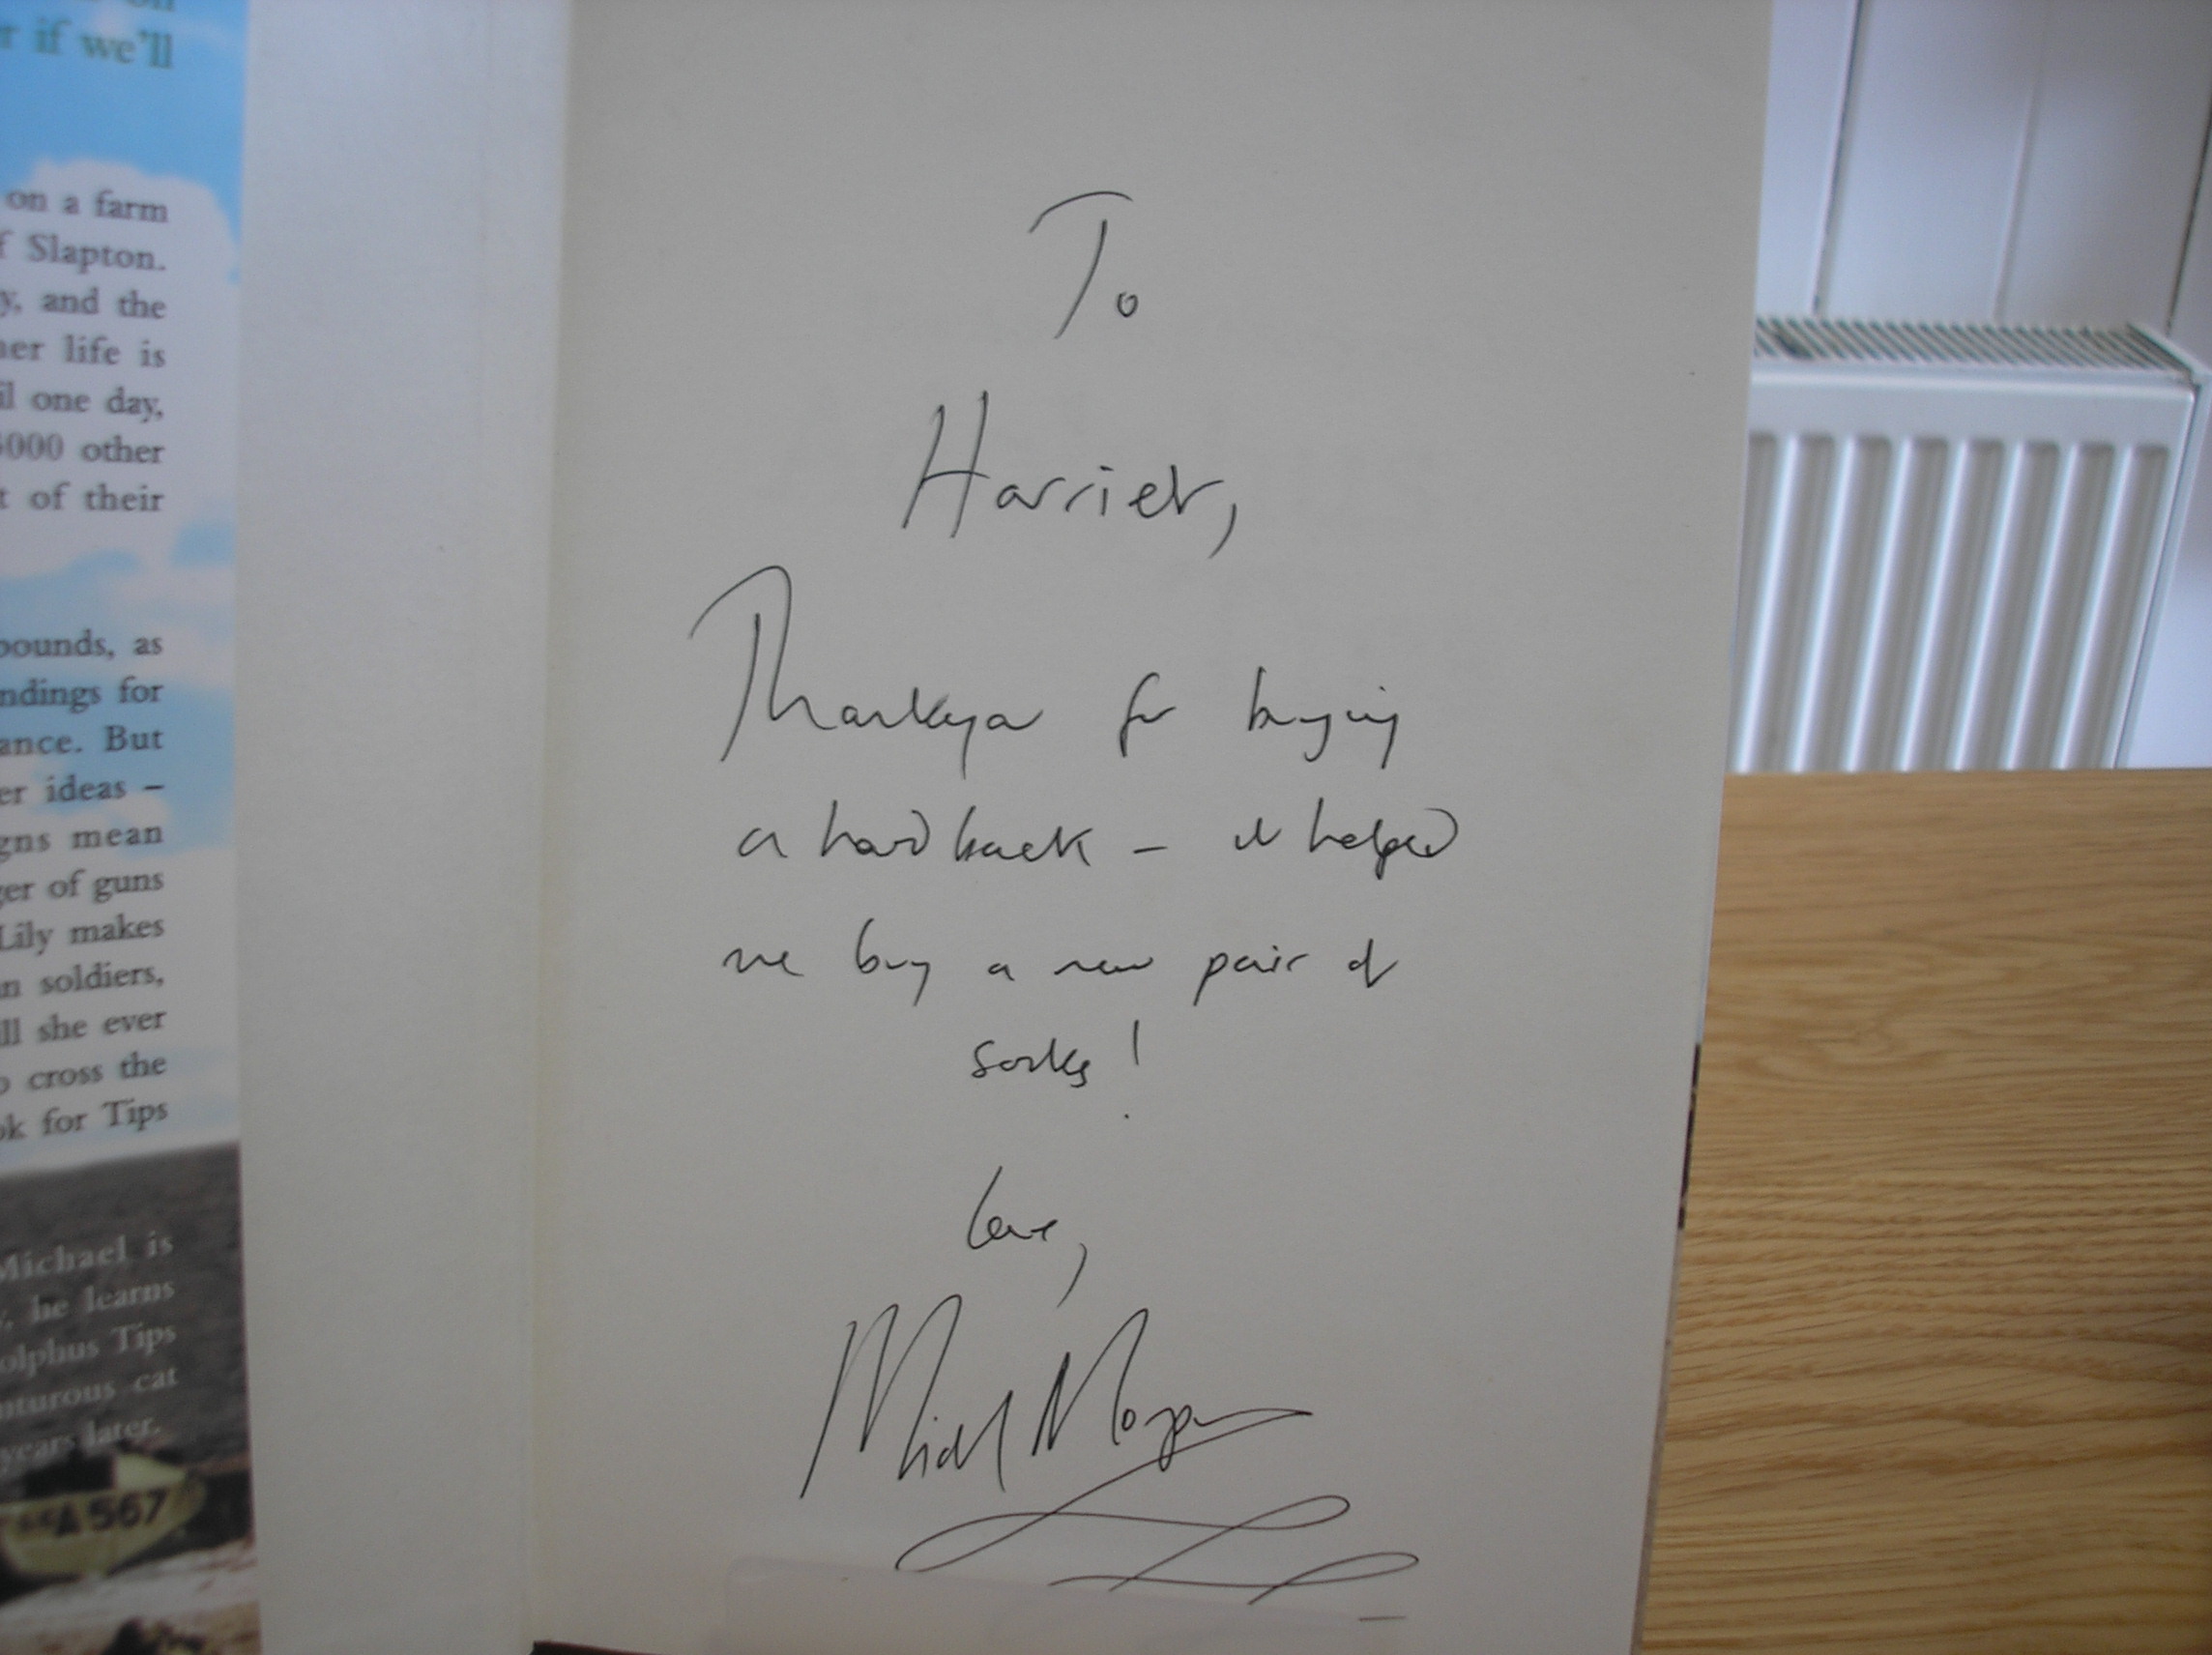 r if we'll
on a farm
f Slapton.
y, and the
her life is
il one day,
000 other
t of their
pounds, as
ndings for
ance. But
er ideas –
gns mean
ger of guns
Lily makes
n soldiers,
ill she ever
o cross the
ok for Tips
Michael is
, he learns
olphus Tips
nturous cat
years later.
A 567
To
Harriet,
Thankyou for buying
a hardback – it helped
me buy a new pair of
socks!
love,
Michael Morpurgo